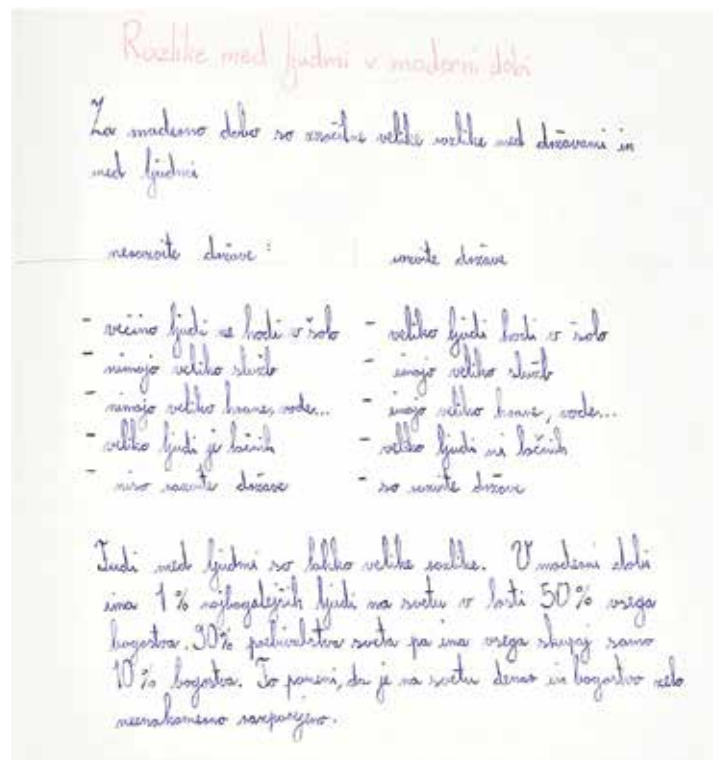 Razlike med ljudmi v moderni dobi
Za moderno dobo so značilne velike razlike med državami in
med ljudmi
nerazvite države :
razvite države
- večino ljudi ne hodi v šolo
- nimajo veliko služb
- nimajo veliko hrane, vode...
- veliko ljudi je lačnih
- niso razvite države
- veliko ljudi hodi v šolo
- imajo veliko služb
- imajo veliko hrane, vode...
- veliko ljudi ni lačnih
- so razvite države
Tudi med ljudmi so lahko velike razlike. V moderni dobi
ima 1% najbogatejših ljudi na svetu v lasti 50% vsega
bogastva. 90% prebivalstva sveta pa ima vsega skupaj samo
10% bogastva. To pomeni, da je na svetu denar in bogastvo zelo
neenakomerno razporejeno.